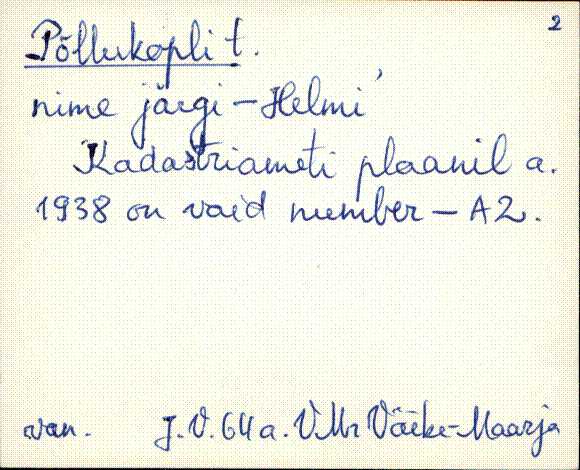 2
Põllukopli t.
nime järgi – Helmi
Kadastriameti plaanil a.
1938 on vaid number – A2.
van. J.V. 64 a. VMr Väike-Maarja